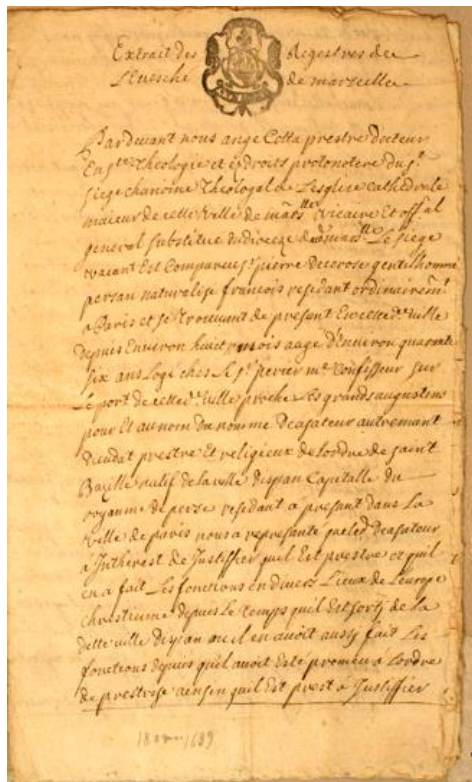 Extrait des Registres de
L'Evesché de marseille
Pardevant nous ange Cotta prestre docteur
En ste Theologie et es droits protonotere du st
siege chanoine Theologal de Lesglise cathedrale
maieur de cette ville de marslle vicaire Et offal
general substitué du dioceze de marslle Le siege
vacant Est Compareu sr pierre decorose gentilhomme
persan naturalise francois residant ordinairemt
a Paris et se trouvant de presant En cette ville
depuis Environ huict mois aagé d'Environ quarate
six ans Logé ches Le sr perier me Confisseur sur
Le port de cette ville proche Les grands augustins
pour Et au nom du nomme Deasateur autremant
Dieudat prestre Et religieux de Lordre de saint
Bazille natif de la ville dispan Capitalle du
royaume de perse residant a presant dans La
ville de paris nous a represanté que led Deasateur
a Intherest de Justiffier quil Est prestre et quil
en a fait Les fonctions en divers Lieux de Leurope
Chrestiene depuis Le temps quil Est sorty de la
dette ville ou il en avoit aussy fait Les
fonctions depuis quil avoit Esté promeu a Lordre
de prestrise ainsin quil Est prest a Justiffier
1689